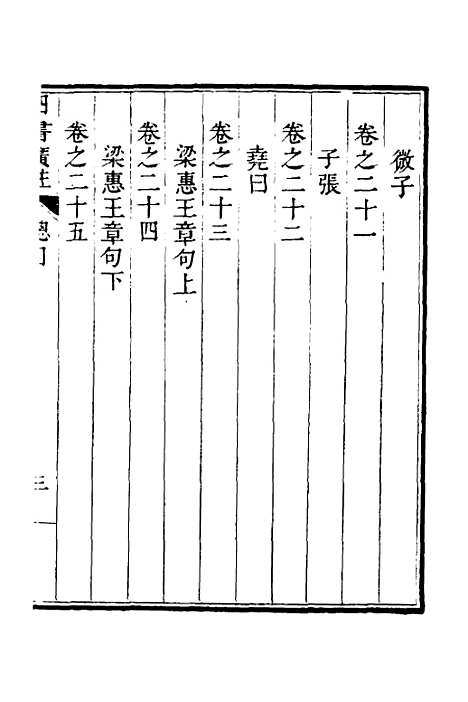 微子
卷之二十一
子張
卷之二十二
堯曰
卷之二十三
梁惠王章句上
卷之二十四
梁惠王章句下
卷之二十五
四書廣註 總目 三